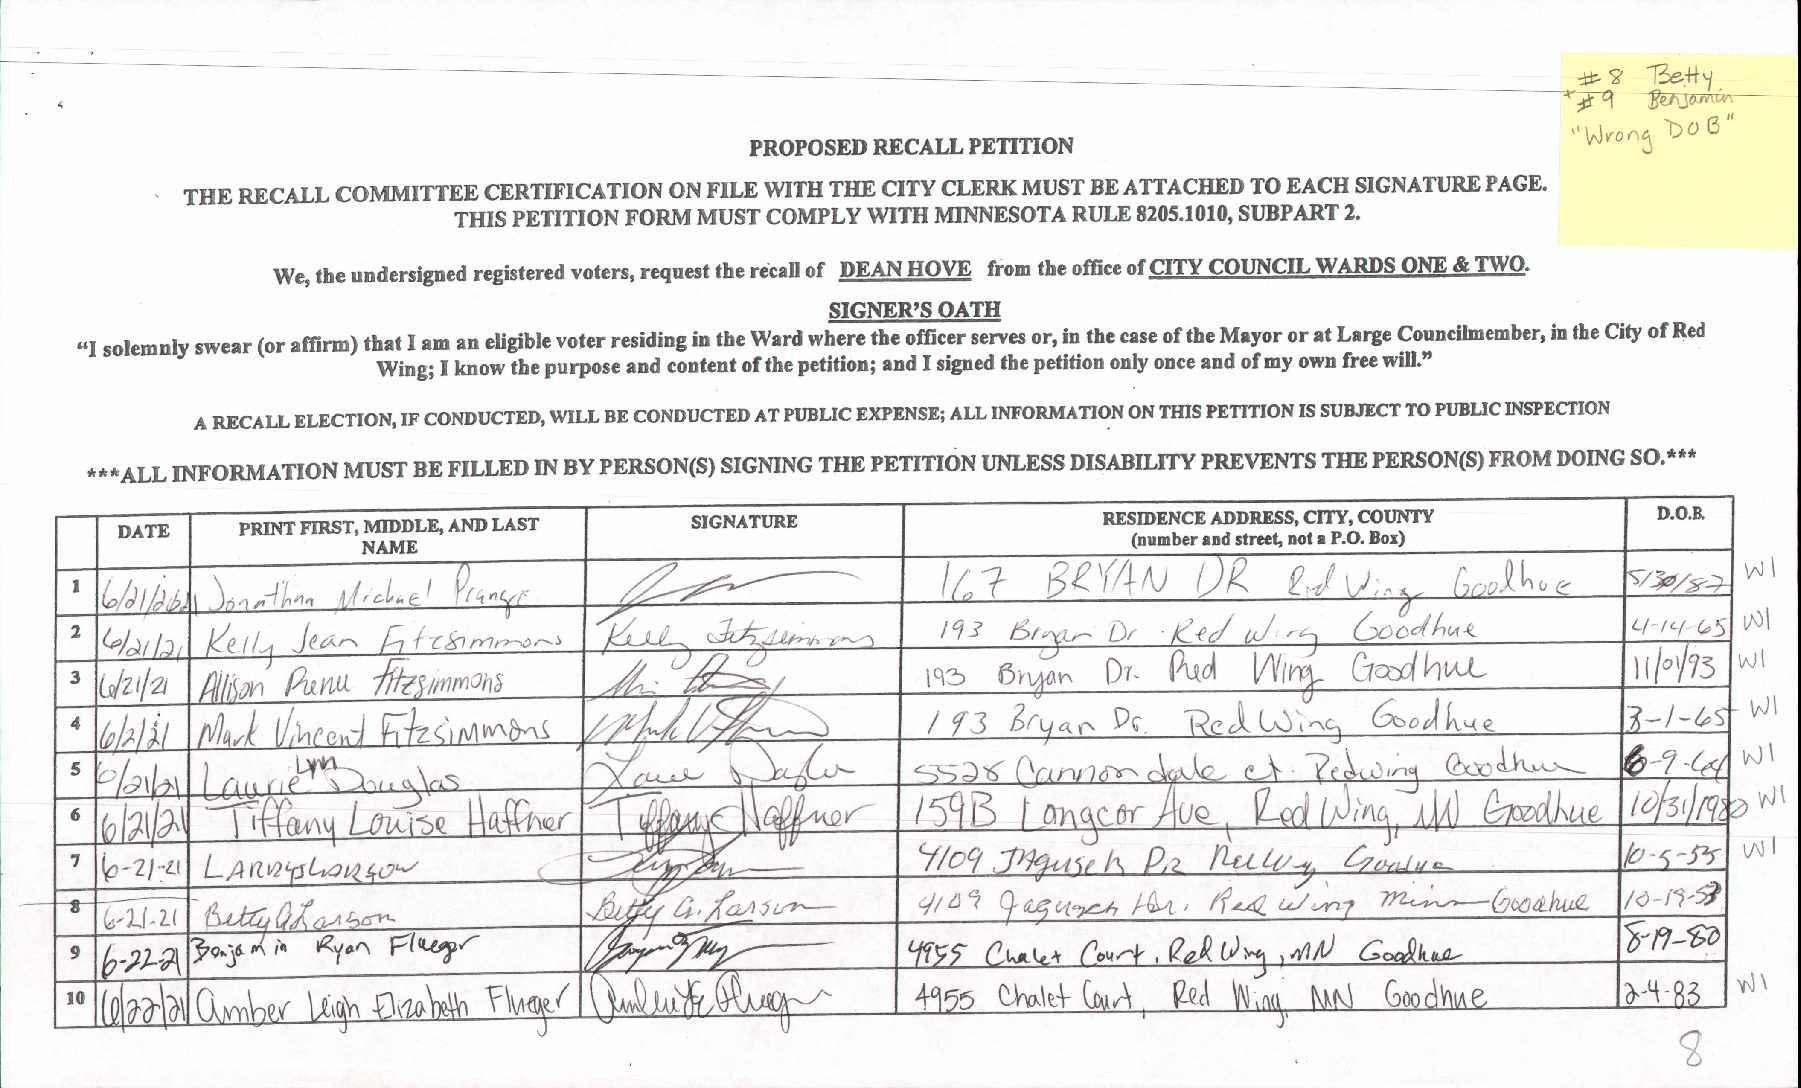 #8 Betty
+ #9 Benjamin
"Wrong DOB"
PROPOSED RECALL PETITION
THE RECALL COMMITTEE CERTIFICATION ON FILE WITH THE CITY CLERK MUST BE ATTACHED TO EACH SIGNATURE PAGE.
THIS PETITION FORM MUST COMPLY WITH MINNESOTA RULE 8205.1010, SUBPART 2.
We, the undersigned registered voters, request the recall of DEAN HOVE from the office of CITY COUNCIL WARDS ONE & TWO.
SIGNER'S OATH
"I solemnly swear (or affirm) that I am an eligible voter residing in the Ward where the officer serves or, in the case of the Mayor or at Large Councilmember, in the City of Red
Wing; I know the purpose and content of the petition; and I signed the petition only once and of my own free will."
A RECALL ELECTION, IF CONDUCTED, WILL BE CONDUCTED AT PUBLIC EXPENSE; ALL INFORMATION ON THIS PETITION IS SUBJECT TO PUBLIC INSPECTION
***ALL INFORMATION MUST BE FILLED IN BY PERSON(S) SIGNING THE PETITION UNLESS DISABILITY PREVENTS THE PERSON(S) FROM DOING SO.***
DATE PRINT FIRST, MIDDLE, AND LAST NAME SIGNATURE RESIDENCE ADDRESS, CITY, COUNTY (number and street, not a P.O. Box) D.O.B.
1 6/21/2021 Jonathan Michael 167 BRYAN DR Red Wing Goodhue 5/30/87 W1
2 6/21/21 Kelly Jean Fitzsimmons Kelly Fitzsimmons 193 Bryan Dr. Red Wing Goodhue 4-14-65 W1
3 6/21/21 Allison Fitzsimmons 193 Bryan Dr. Red Wing Goodhue 11/01/93 W1
4 6/21/21 Mark Vincent Fitzsimmons 193 Bryan Dr. Red Wing Goodhue 3-1-65 W1
5 6/21/21 Laurie Lynn Douglas 5528 Cannondale ct. Redwing Goodhue 6-9-64 W1
6 6/21/21 Tiffany Louise Haffner Tiffany Haffner 159B Longcor Ave, Red Wing, MN Goodhue 10/31/1980 W1
7 6-21-21 LARRY LARSON 4109 Goodhue 10-5-55 W1
8 6-21-21 Betty G Larson Betty G. Larson 4109 Red Wing Minn Goodhue
9 6-22-21 Benjamin Ryan Flueger 4955 Chalet Court, Red Wing, MN Goodhue 8-19-80
10 6/22/21 Amber Leigh Elizabeth Flueger 4955 Chalet Court, Red Wing, MN Goodhue 2-4-83 W1
8